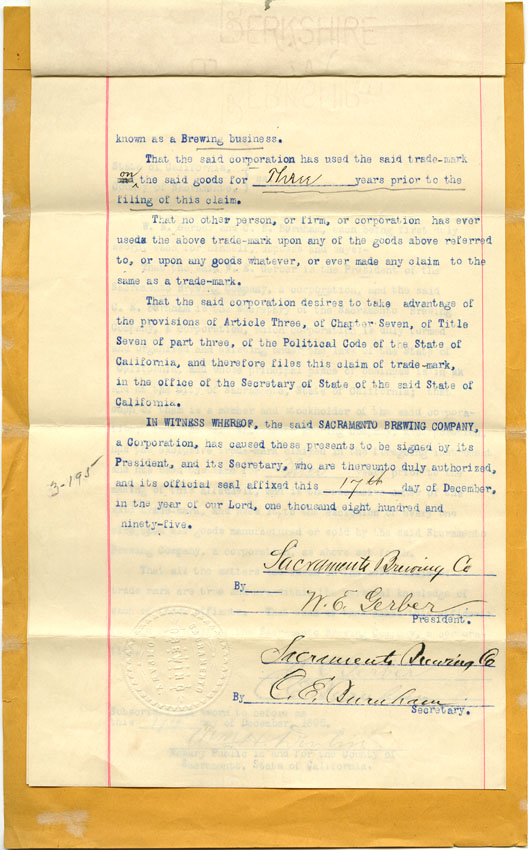 BERKSHIRE
known as a Brewing business.
That the said corporation has used the said trade-mark
on
and the said goods for Three years prior to the
filing of this claim.
That no other person, or firm, or corporation has ever
used the above trade-mark upon any of the goods above referred
to, or upon any goods whatever, or ever made any claim to the
same as a trade-mark.
That the said corporation desires to take advantage of
the provisions of Article Three, of Chapter Seven, of Title
Seven of part three, of the Political Code of the State of
California, and therefore files this claim of trade-mark,
in the office of the Secretary of State of the said State of
California.
IN WITNESS WHEREOF, the said SACRAMENTO BREWING COMPANY,
a Corporation, has caused these presents to be signed by its
President, and its Secretary, who are thereunto duly authorized,
and its official seal affixed this 17th day of December,
in the year of our Lord, one thousand eight hundred and
ninety-five.
3-195
Sacramento Brewing Co
By
W. E. Gerber
President.
Sacramento Brewing Co
By C. E. Burnham
Secretary.
Notary Public in and for the County of
Sacramento, State of California.